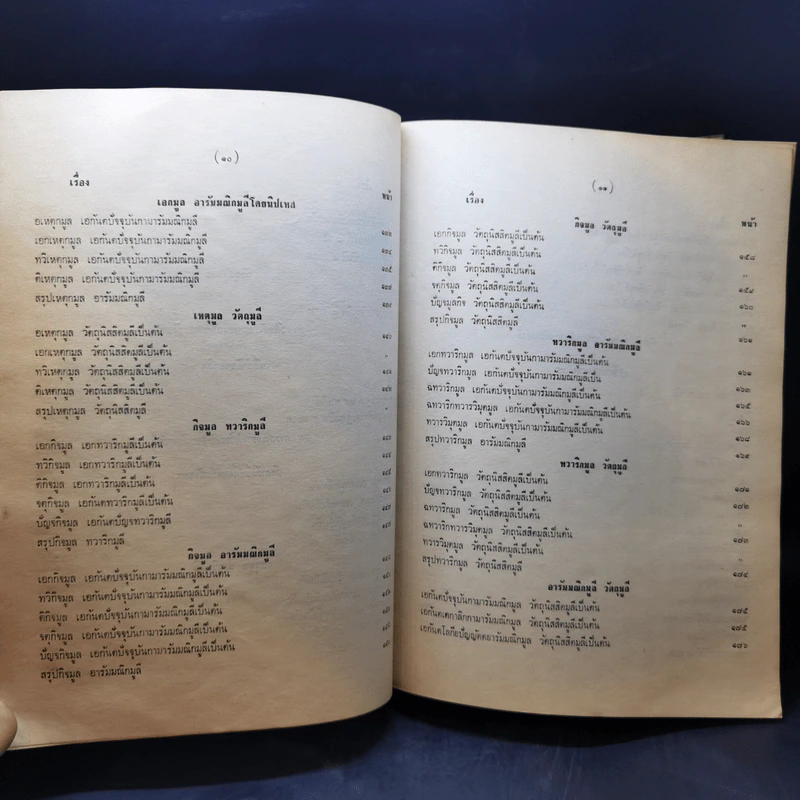 (๑๐)
เรื่อง หน้า
เอกมูล อารัมมณิกมูลีโดยนิปเทส
อเหตุกมูล เอกันตปัจจุบันกามารัมมณิกมูลี ๑๓๓
เอกเหตุกมูล เอกันตปัจจุบันกามารัมมณิกมูลี ๑๓๔
ทวิเหตุกมูล เอกันตปัจจุบันกามารัมมณิกมูลี ๑๓๕
ติเหตุกมูล เอกันตปัจจุบันกามารัมมณิกมูลี ๑๓๗
สรุปเหตุกมูล อารัมมณิกมูลี ๑๓๙
เหตุมูล วัตถุมูลี
อเหตุกมูล วัตถุนิสสิตมูลีเป็นต้น
เอกเหตุกมูล วัตถุนิสสิตมูลีเป็นต้น
ทวิเหตุกมูล วัตถุนิสสิตมูลีเป็นต้น
ติเหตุกมูล วัตถุนิสสิตมูลีเป็นต้น
สรุปเหตุกมูล วัตถุนิสสิตมูลี "
กิจมูล ทวาริกมูลี
เอกกิจมูล เอกทวาริกมูลีเป็นต้น
ทวิกิจมูล เอกทวาริกมูลีเป็นต้น
ติกิจมูล เอกทวาริกมูลีเป็นต้น
จตุกิจมูล เอกทวาริกมูลีเป็นต้น
ปัญจกิจมูล เอกันตปัญจทวาริกมูลี
สรุปกิจมูล ทวาริกมูลี
กิจมูล อารัมมณิกมูลี
เอกกิจมูล เอกันตปัจจุบันกามารัมมณิกมูลีเป็นต้น
ทวิกิจมูล เอกันตปัจจุบันกามารัมมณิกมูลีเป็นต้น
ติกิจมูล เอกันตปัจจุบันกามารัมมณิกมูลีเป็นต้น
จตุกิจมูล เอกันตปัจจุบันกามารัมมณิกมูลีเป็นต้น
ปัญจกิจมูล เอกันตปัจจุบันกามารัมมณิกมูลีเป็นต้น
สรุปกิจมูล อารัมมณิกมูลี
(๑๑)
เรื่อง หน้า
กิจมูล วัตถุมูลี
เอกกิจมูล วัตถุนิสสิตมูลีเป็นต้น ๑๕๘
ทวิกิจมูล วัตถุนิสสิตมูลีเป็นต้น "
ติกิจมูล วัตถุนิสสิตมูลีเป็นต้น ๑๕๙
จตุกิจมูล วัตถุนิสสิตมูลีเป็นต้น ๑๖๐
ปัญจมูลกิจ วัตถุนิสสิตมูลีเป็นต้น "
สรุปกิจมูล วัตถุนิสสิตมูลี ๑๖๑
ทวาริกมูล อารัมมณิกมูลี
เอกทวาริกมูล เอกันตปัจจุบันกามารัมมณิกมูลีเป็นต้น ๑๖๑
ปัญจทวาริกมูล เอกันตปัจจุบันกามารัมมณิกมูลีเป็น ๑๖๓
ฉทวาริกมูล เอกันตปัจจุบันกามารัมมณิกมูลีเป็นต้น ๑๖๕
ฉทวาริกทวารวิมุตมูล เอกันตปัจจุบันกามารัมมณิกมูลีเป็นต้น ๑๖๖
ทวารวิมุตมูล เอกันตปัจจุบันกามารัมมณิกมูลีเป็นต้น ๑๖๘
สรุปทวาริกมูล อารัมมณิกมูลี ๑๖๙
ทวาริกมูล วัตถุมูลี
เอกทวาริกมูล วัตถุนิสสิตมูลีเป็นต้น ๑๗๑
ปัญจทวาริกมูล วัตถุนิสสิตมูลีเป็นต้น ๑๗๒
ฉทวาริกมูล วัตถุนิสสิตมูลีเป็นต้น "
ฉทวาริกทวารวิมุตมูล วัตถุนิสสิตมูลีเป็นต้น ๑๗๓
ทวารวิมุตมูล วัตถุนิสสิตมูลีเป็นต้น "
สรุปทวาริกมูล วัตถุนิสสิตมูลี ๑๗๔
อารัมมณิกมูลี วัตถุมูลี
เอกันตปัจจุบันกามารัมมณิกมูล วัตถุนิสสิตมูลีเป็นต้น ๑๗๕
เอกันตเตกาลิกกามารัมมณิกมูล วัตถุนิสสิตมูลีเป็นต้น ๑๗๕
เอกันตโลกียปัญญัตตยารัมมณิกมูล วัตถุนิสสิตมูลีเป็นต้น ๑๗๖